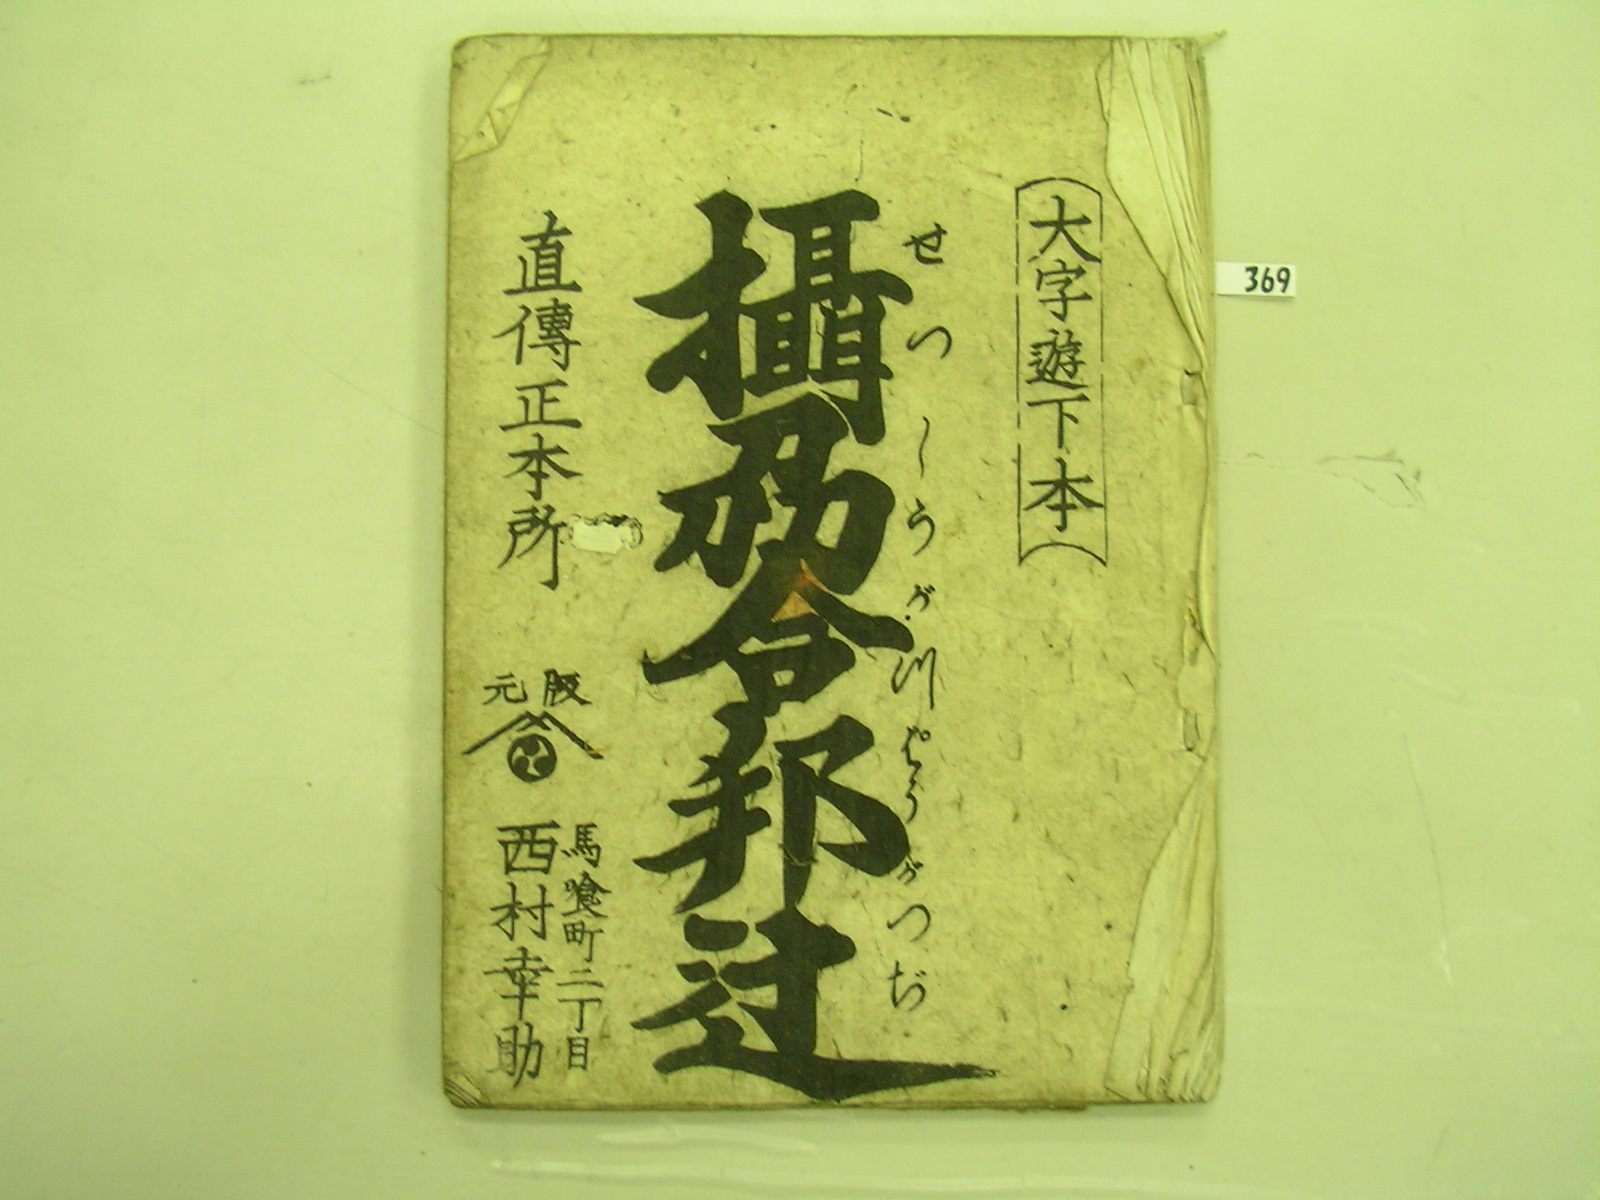 大字遊下本
せつしうがつぽうがつぢ
攝刕合邦辻
直傳正本所
版元
馬喰町二丁目
西村幸助
369